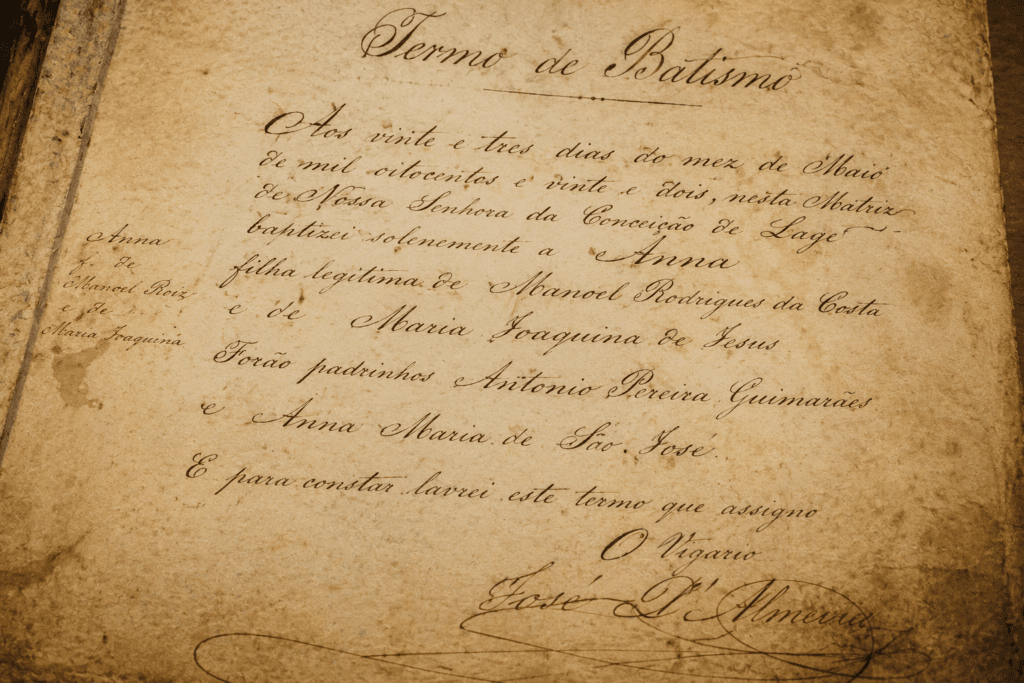 Termo de Batismo
Aos vinte e tres dias do mez de Maio
de mil oitocentos e vinte e dois, nesta Matriz
de Nossa Senhora da Conceição de Lage
baptizei solenemente a Anna
filha legitima de Manoel Rodrigues da Costa
e de Maria Joaquina de Jesus
Forão padrinhos Antonio Pereira Guimarães
e Anna Maria de São José.
E para constar lavrei este termo que assigno
O Vigario
José D'
Anna
f. de
Manoel Roiz
e de
Maria Joaquina